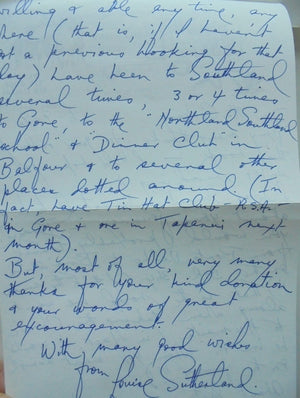 willing & able any time, any
where (that is, if I haven't
got a previous booking for that
day) Have been to Southland
several times, 3 or 4 times
to Gore, to the "Northland Southland
school" & "Dinner Club" in
Balfour & to several other
places dotted around. (In
fact, have Tin Hat Club - R.S.A. -
in Gore & one in Tapanui next
month).
But, most of all, very many
thanks for your kind donation
& your words of great
encouragement.
With many good wishes
from Louise Sutherland.